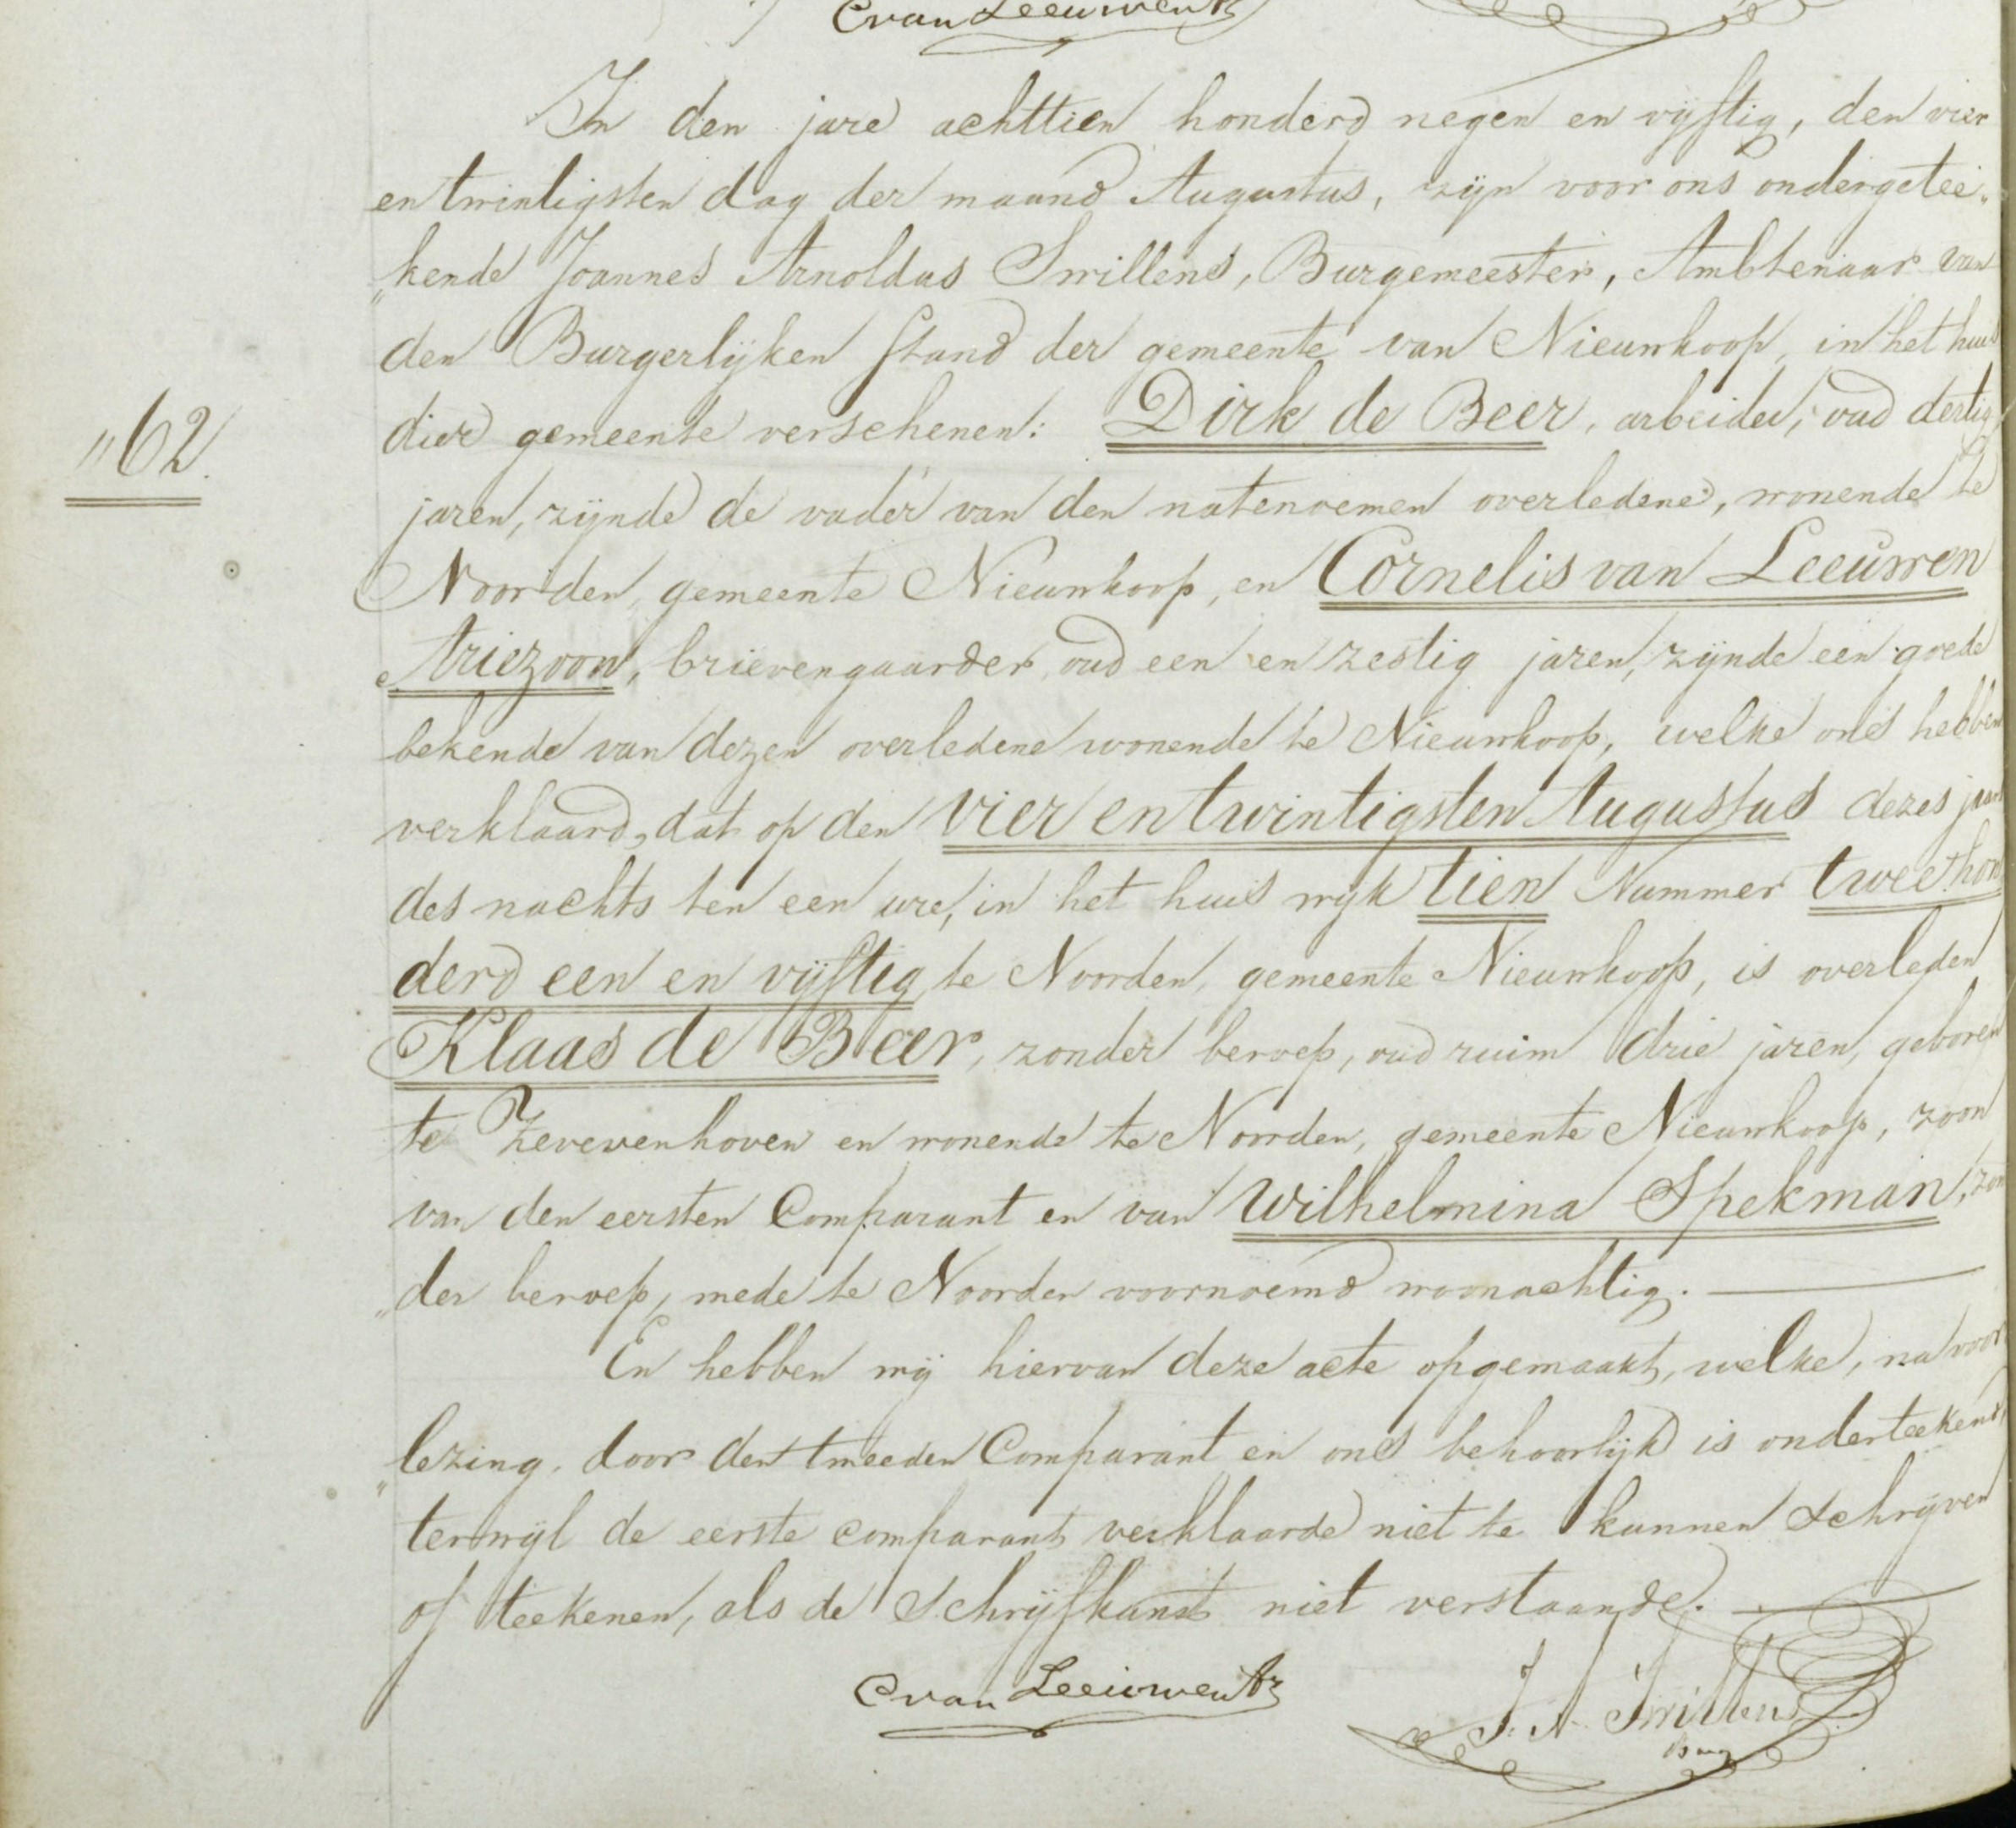 C van Leeuwen Az
In den jare achttien honderd negen en vyftig, den vier
en twintigsten dag der maand Augustus, zyn voor ons ondergetee„
„kende Joannes Arnoldus Swillens, Burgemeester, Ambtenaar van
den Burgerlyken Stand der gemeente van Nieuwkoop, in het huis
dier gemeente verschenen: Dirk de Beer, arbeider, oud dertig
„62.
jaren, zynde de vader van den natenoemen overledene, wonende te
Noorden, gemeente Nieuwkoop, en Cornelis van Leeuwen
Ariezoon, brievengaarder, oud een en zestig jaren, zynde een goede
bekende van dezen overledene wonende te Nieuwkoop, welke ons hebben
verklaard, dat op den vier en twintigsten Augustus dezes jaars
des nachts ten een ure, in het huis wyk tien Nummer twee hon
derd een en vyftig te Noorden, gemeente Nieuwkoop, is overleden
Klaas de Beer, zonder beroep, oud ruim drie jaren, geboren
te Zevevenhoven en wonende te Noorden, gemeente Nieuwkoop, zoon
van den eersten Comparant en van Wilhelmina Spekman, zon
„der beroep, mede te Noorden voornoemd woonachtig.
En hebben wy hiervan deze acte opgemaakt, welke, na voor
„lezing, door den tweeden Comparant en ons behoorlyk is onderteekend,
terwyl de eerste comparant verklaarde niet te kunnen schryven
of teekenen, als de Schryfkunst niet verstaande.
C van Leeuwen Az
J. A. Swillens
Burg